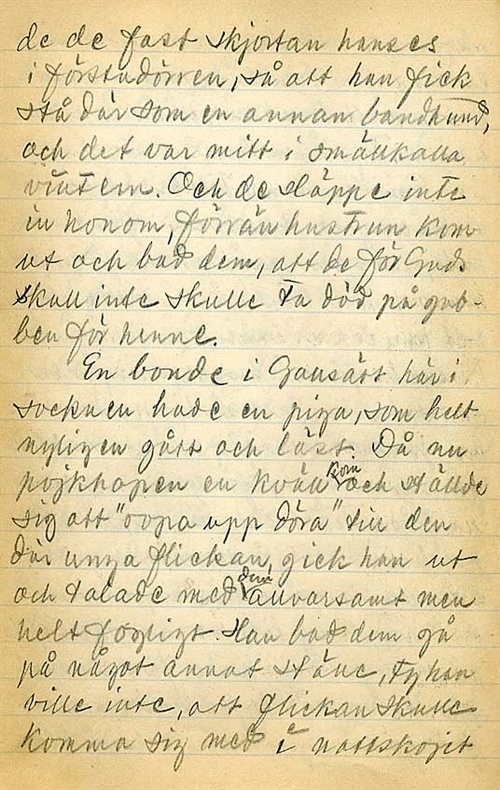 de de fast skjortan hanses
i förstudörren, så att han fick
stå där som en annan bandhund,
och det var mitt i smällkalla
vintern. Och de släppe inte
in honom, förrän hustrun kom
ut och bad dem, att de för Guds
skull inte skulle ta död på gub-
ben för henne.
En bonde i Gausäst här i
socknen hade en piga, som helt
nyligen gått och läst. Då nu
pojkhopen en kväll kom och ställde
sig att "ropa upp döra" till den
där unga flickan, gick han ut
och talade med dem allvarsamt men
helt fogligt. Han bad dem gå
på något annat ställe, ty han
ville inte, att flickan skulle
komma sig med i nattskojet